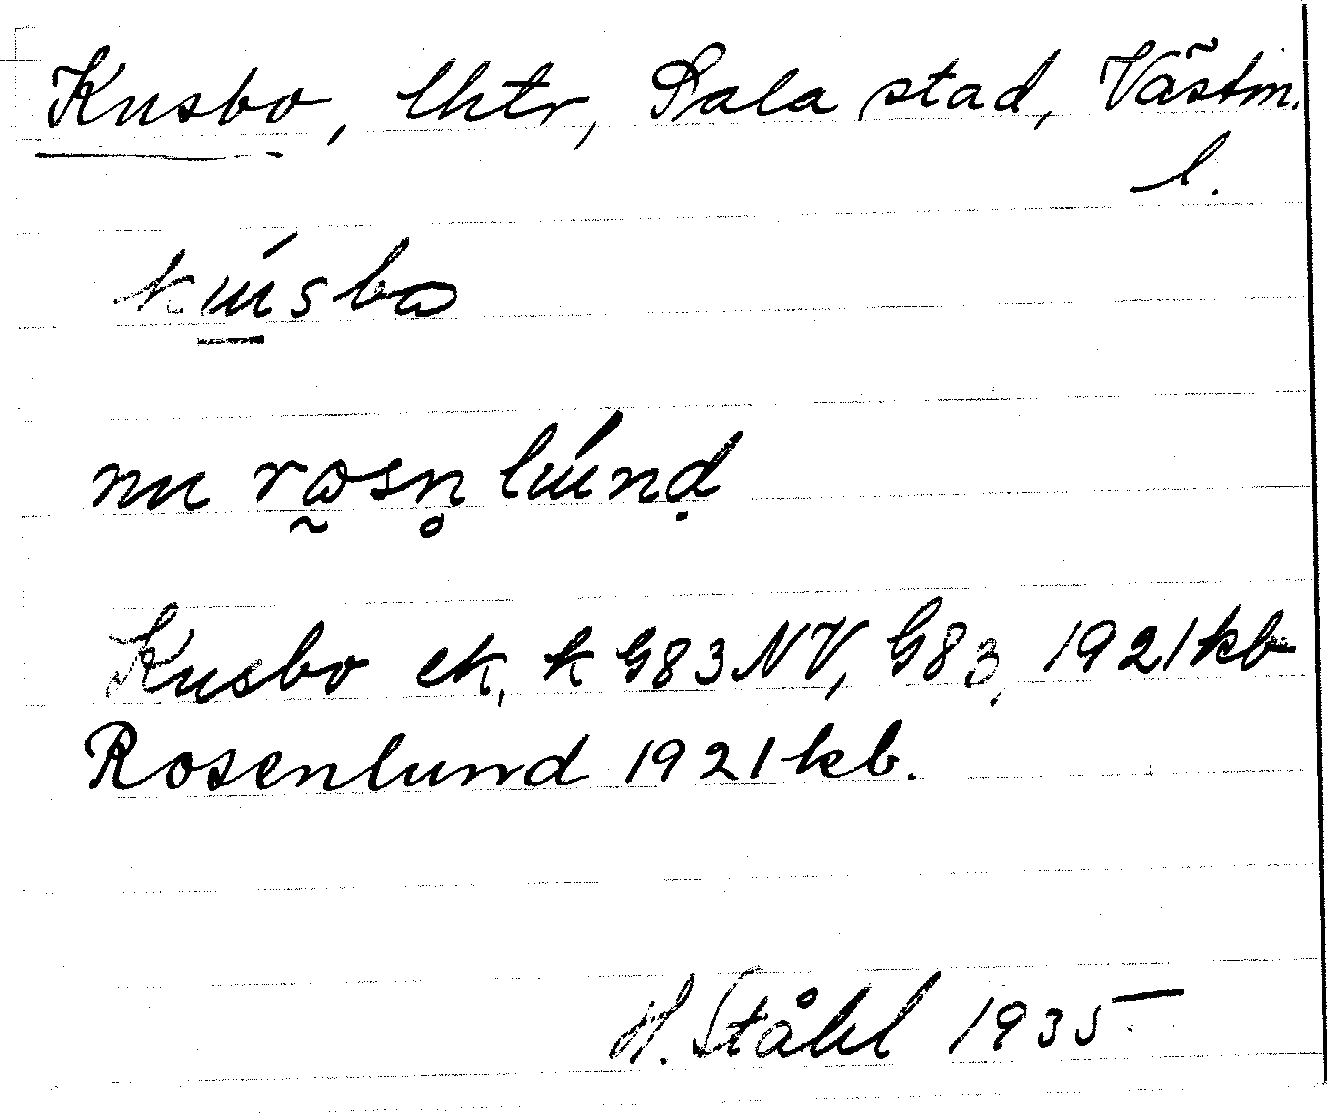 Kusbo, lhtr, Sala stad, Västm.
l.
kúsbo
nu rosn̥lúnd
Kusbo ek, k G83NV, G83, 1921 kb
Rosenlund 1921 kb.
H. Ståhl 1935